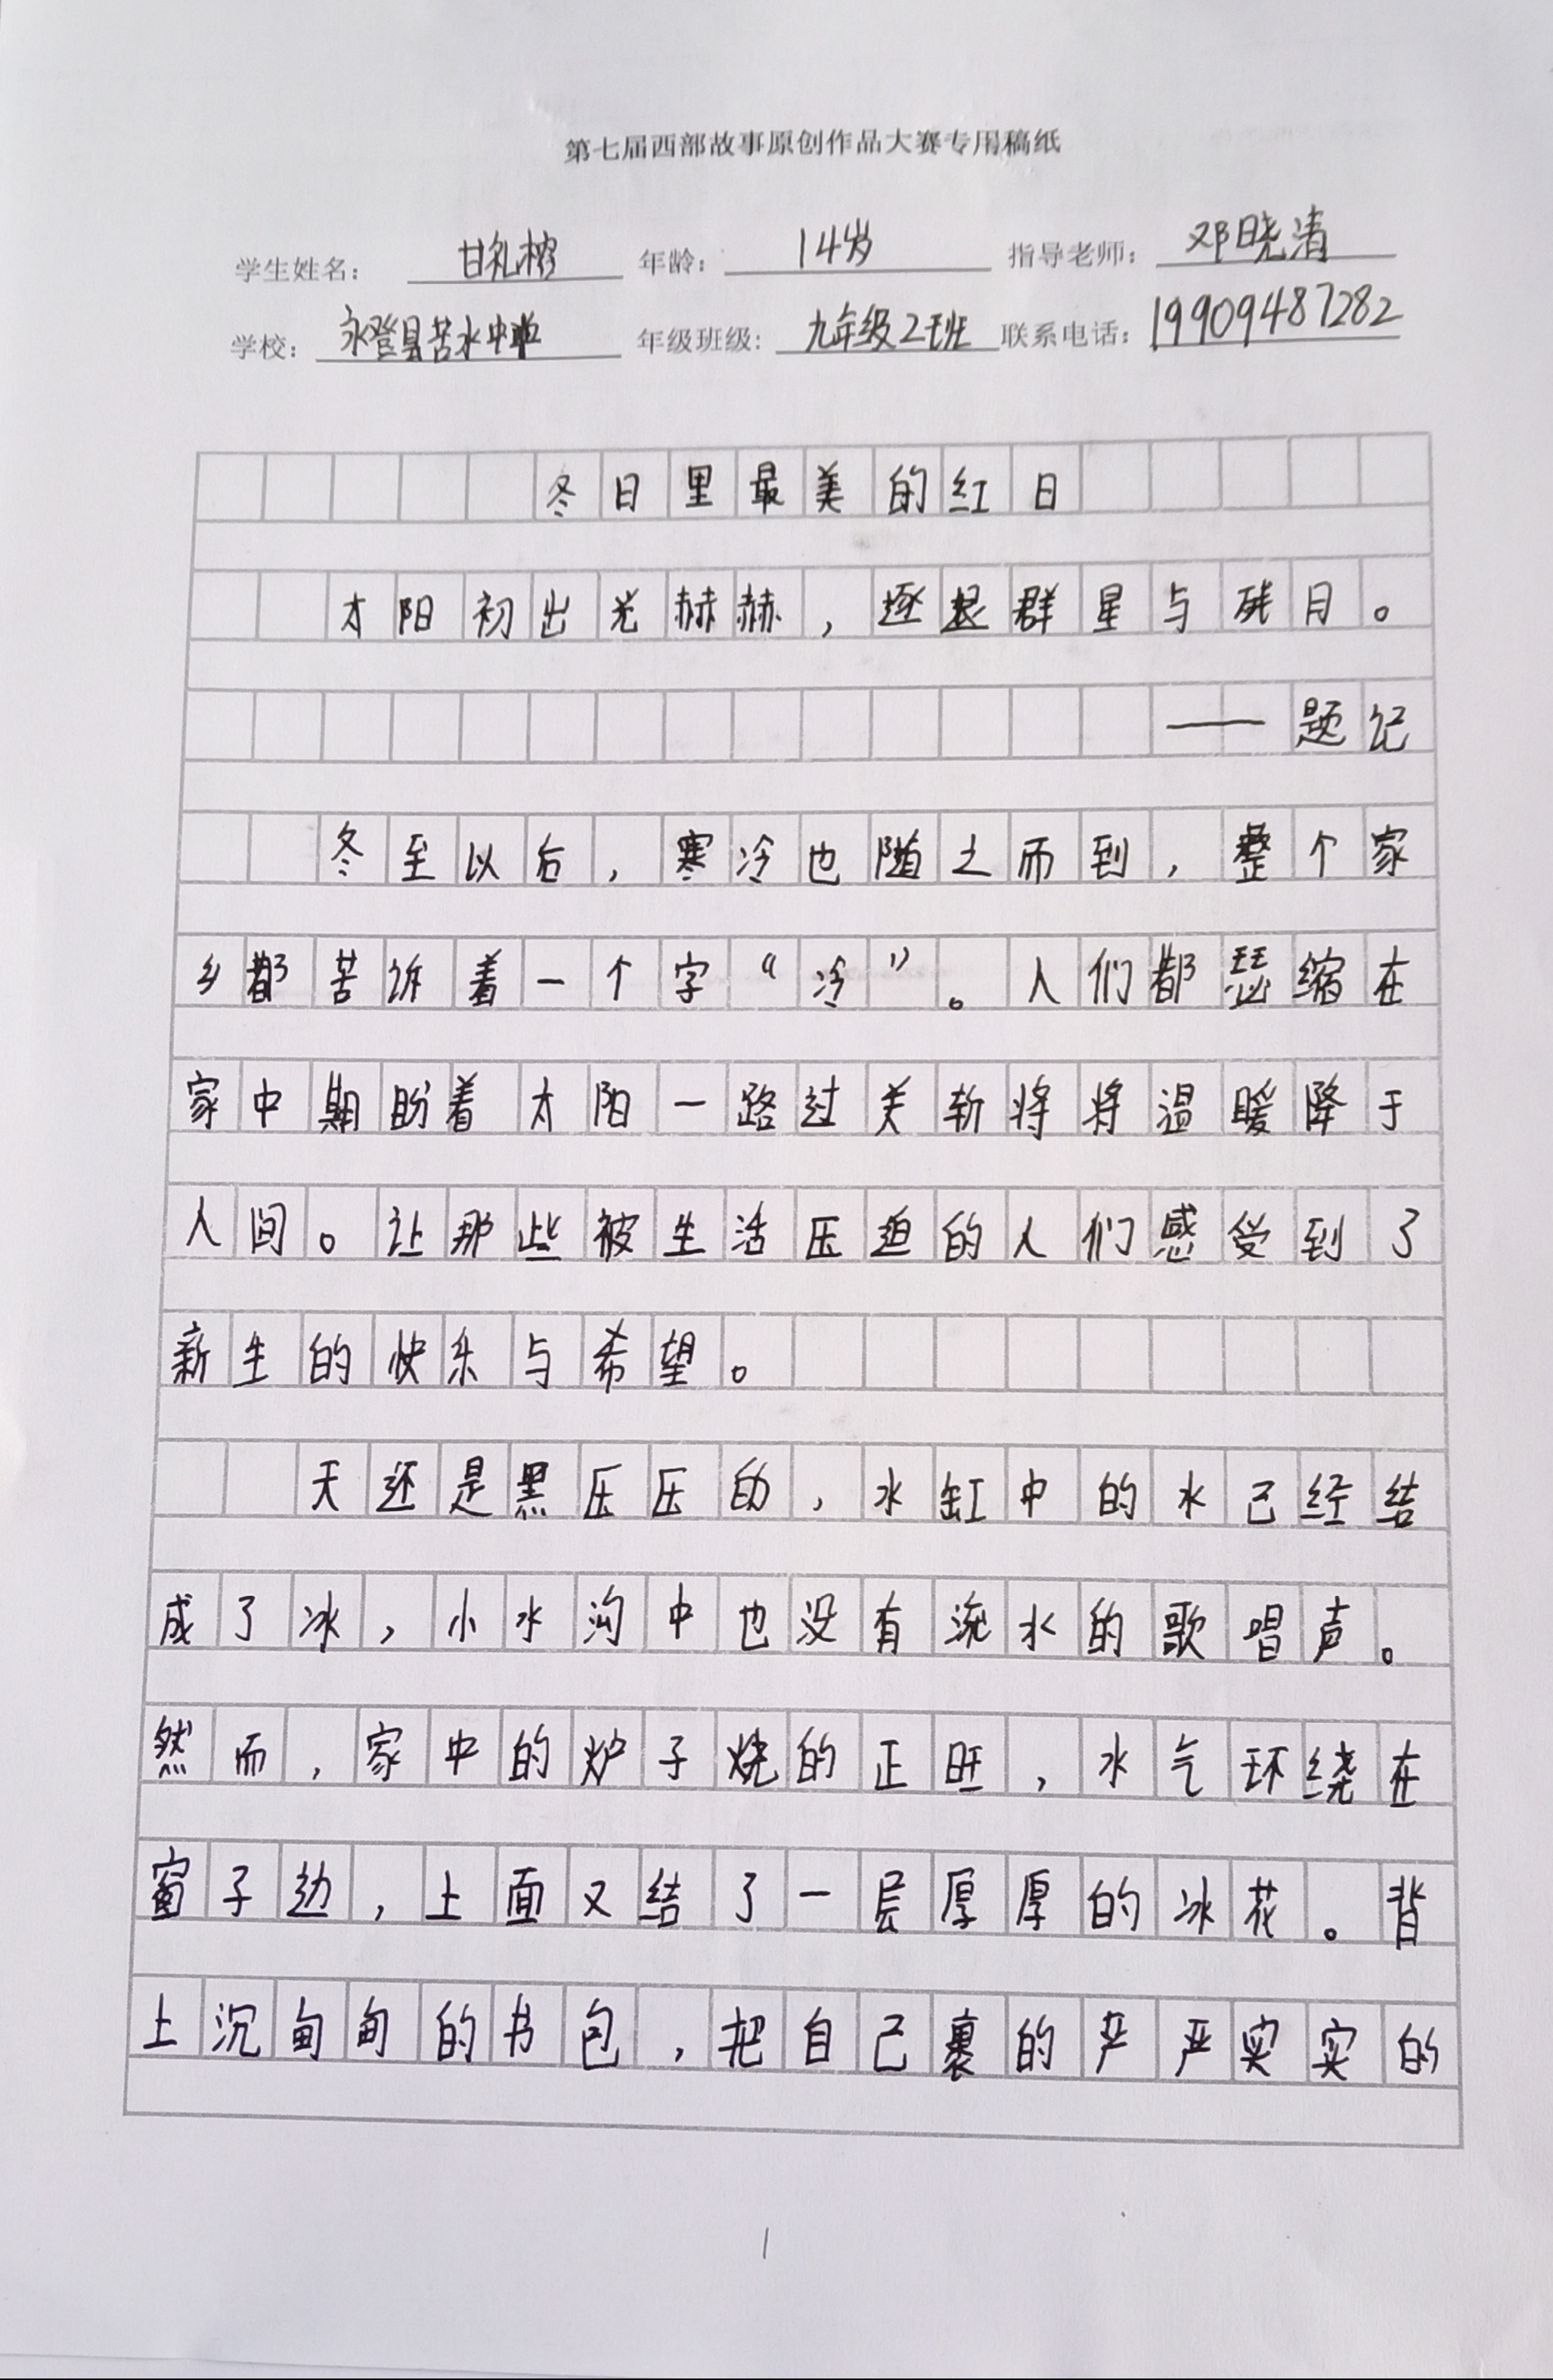 第七届西部故事原创作品大赛专用稿纸
学生姓名： 甘礼榕 年龄： 14岁 指导老师： 邓晓清
学校： 永登县苦水中学 年级班级： 九年级2班 联系电话： 19909487282
冬日里最美的红日
太阳初出光赫赫，逐退群星与残月。
——题记
冬至以后，寒冷也随之而到，整个家
乡都苦诉着一个字“冷”。人们都瑟缩在
家中期盼着太阳一路过关斩将将温暖降于
人间。让那些被生活压迫的人们感受到了
新生的快乐与希望。
天还是黑压压的，水缸中的水已经结
成了冰，小水沟中也没有流水的歌唱声。
然而，家中的炉子烧的正旺，水气环绕在
窗子边，上面又结了一层厚厚的冰花。背
上沉甸甸的书包，把自己裹的严严实实的
1